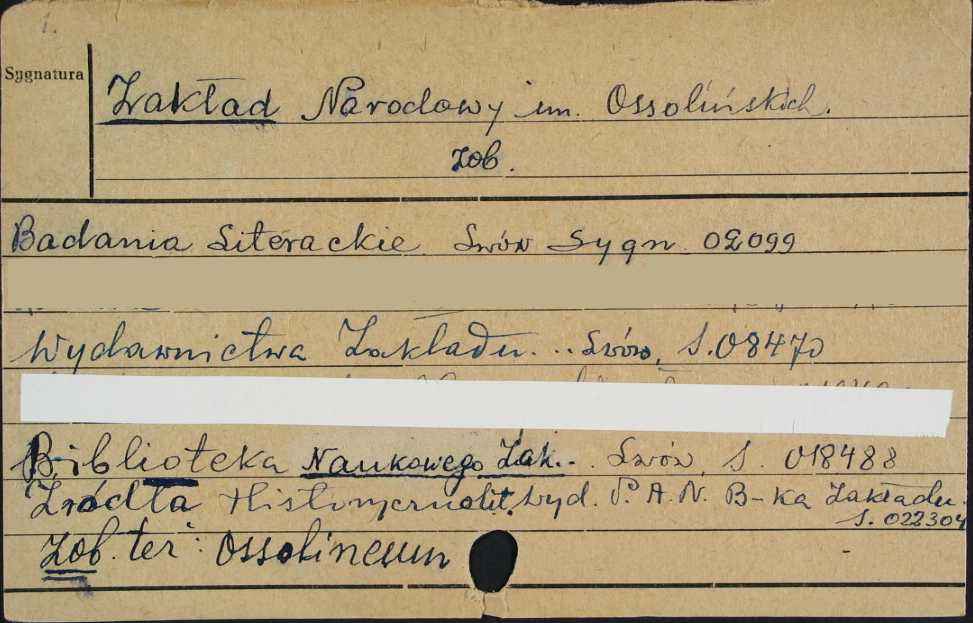 1.
Sygnatura
Zakład Narodowy im. Ossolińskich.
zob.
Badania Literackie Lwów Sygn. 02099
Wydawnictwa Zakładu... Lwów, S. 08470
Biblioteka Naukowego Zak... Lwów, S. 018488
Źródła Historyczno lit. wyd. P. A. N. B-ka Zakładu.
S. 022304
Zob. też: Ossolineum